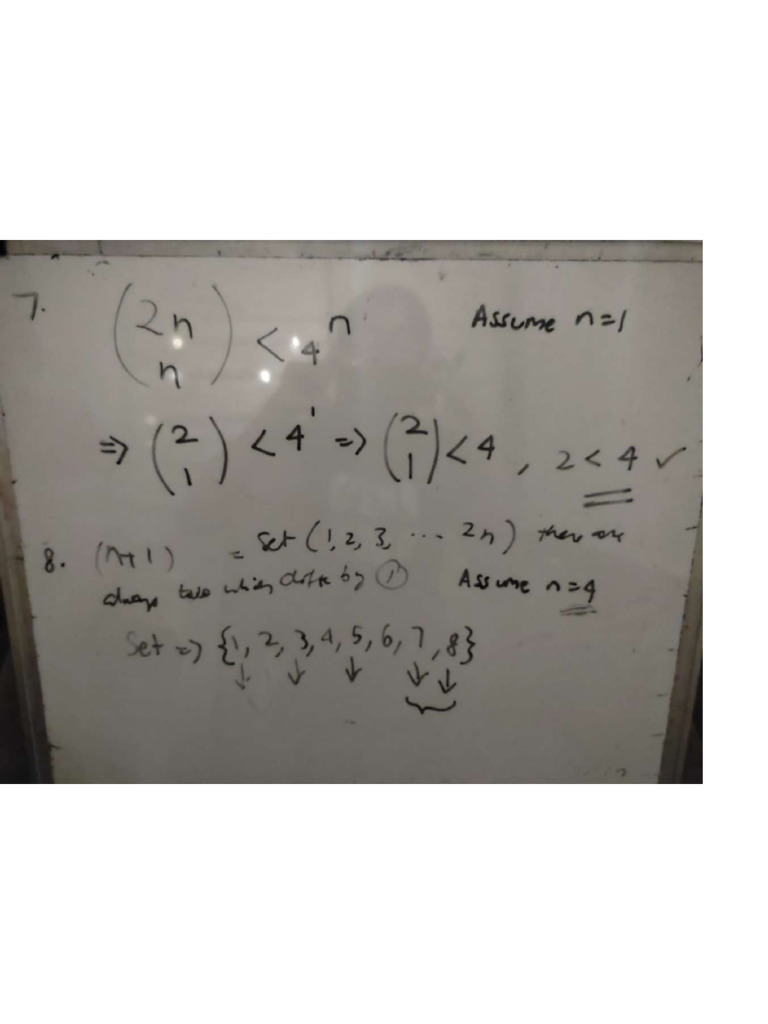 7. (2n n) < 4^n Assume n=1
=> (2 1) < 4^1 => (2 1) < 4 , 2 < 4 ✓
8. (n+1) = Set (1, 2, 3, ... 2n) there are
always two which differ by 1 Assume n=4
Set => {1, 2, 3, 4, 5, 6, 7, 8}
↓ ↓ ↓ ↓ ↓